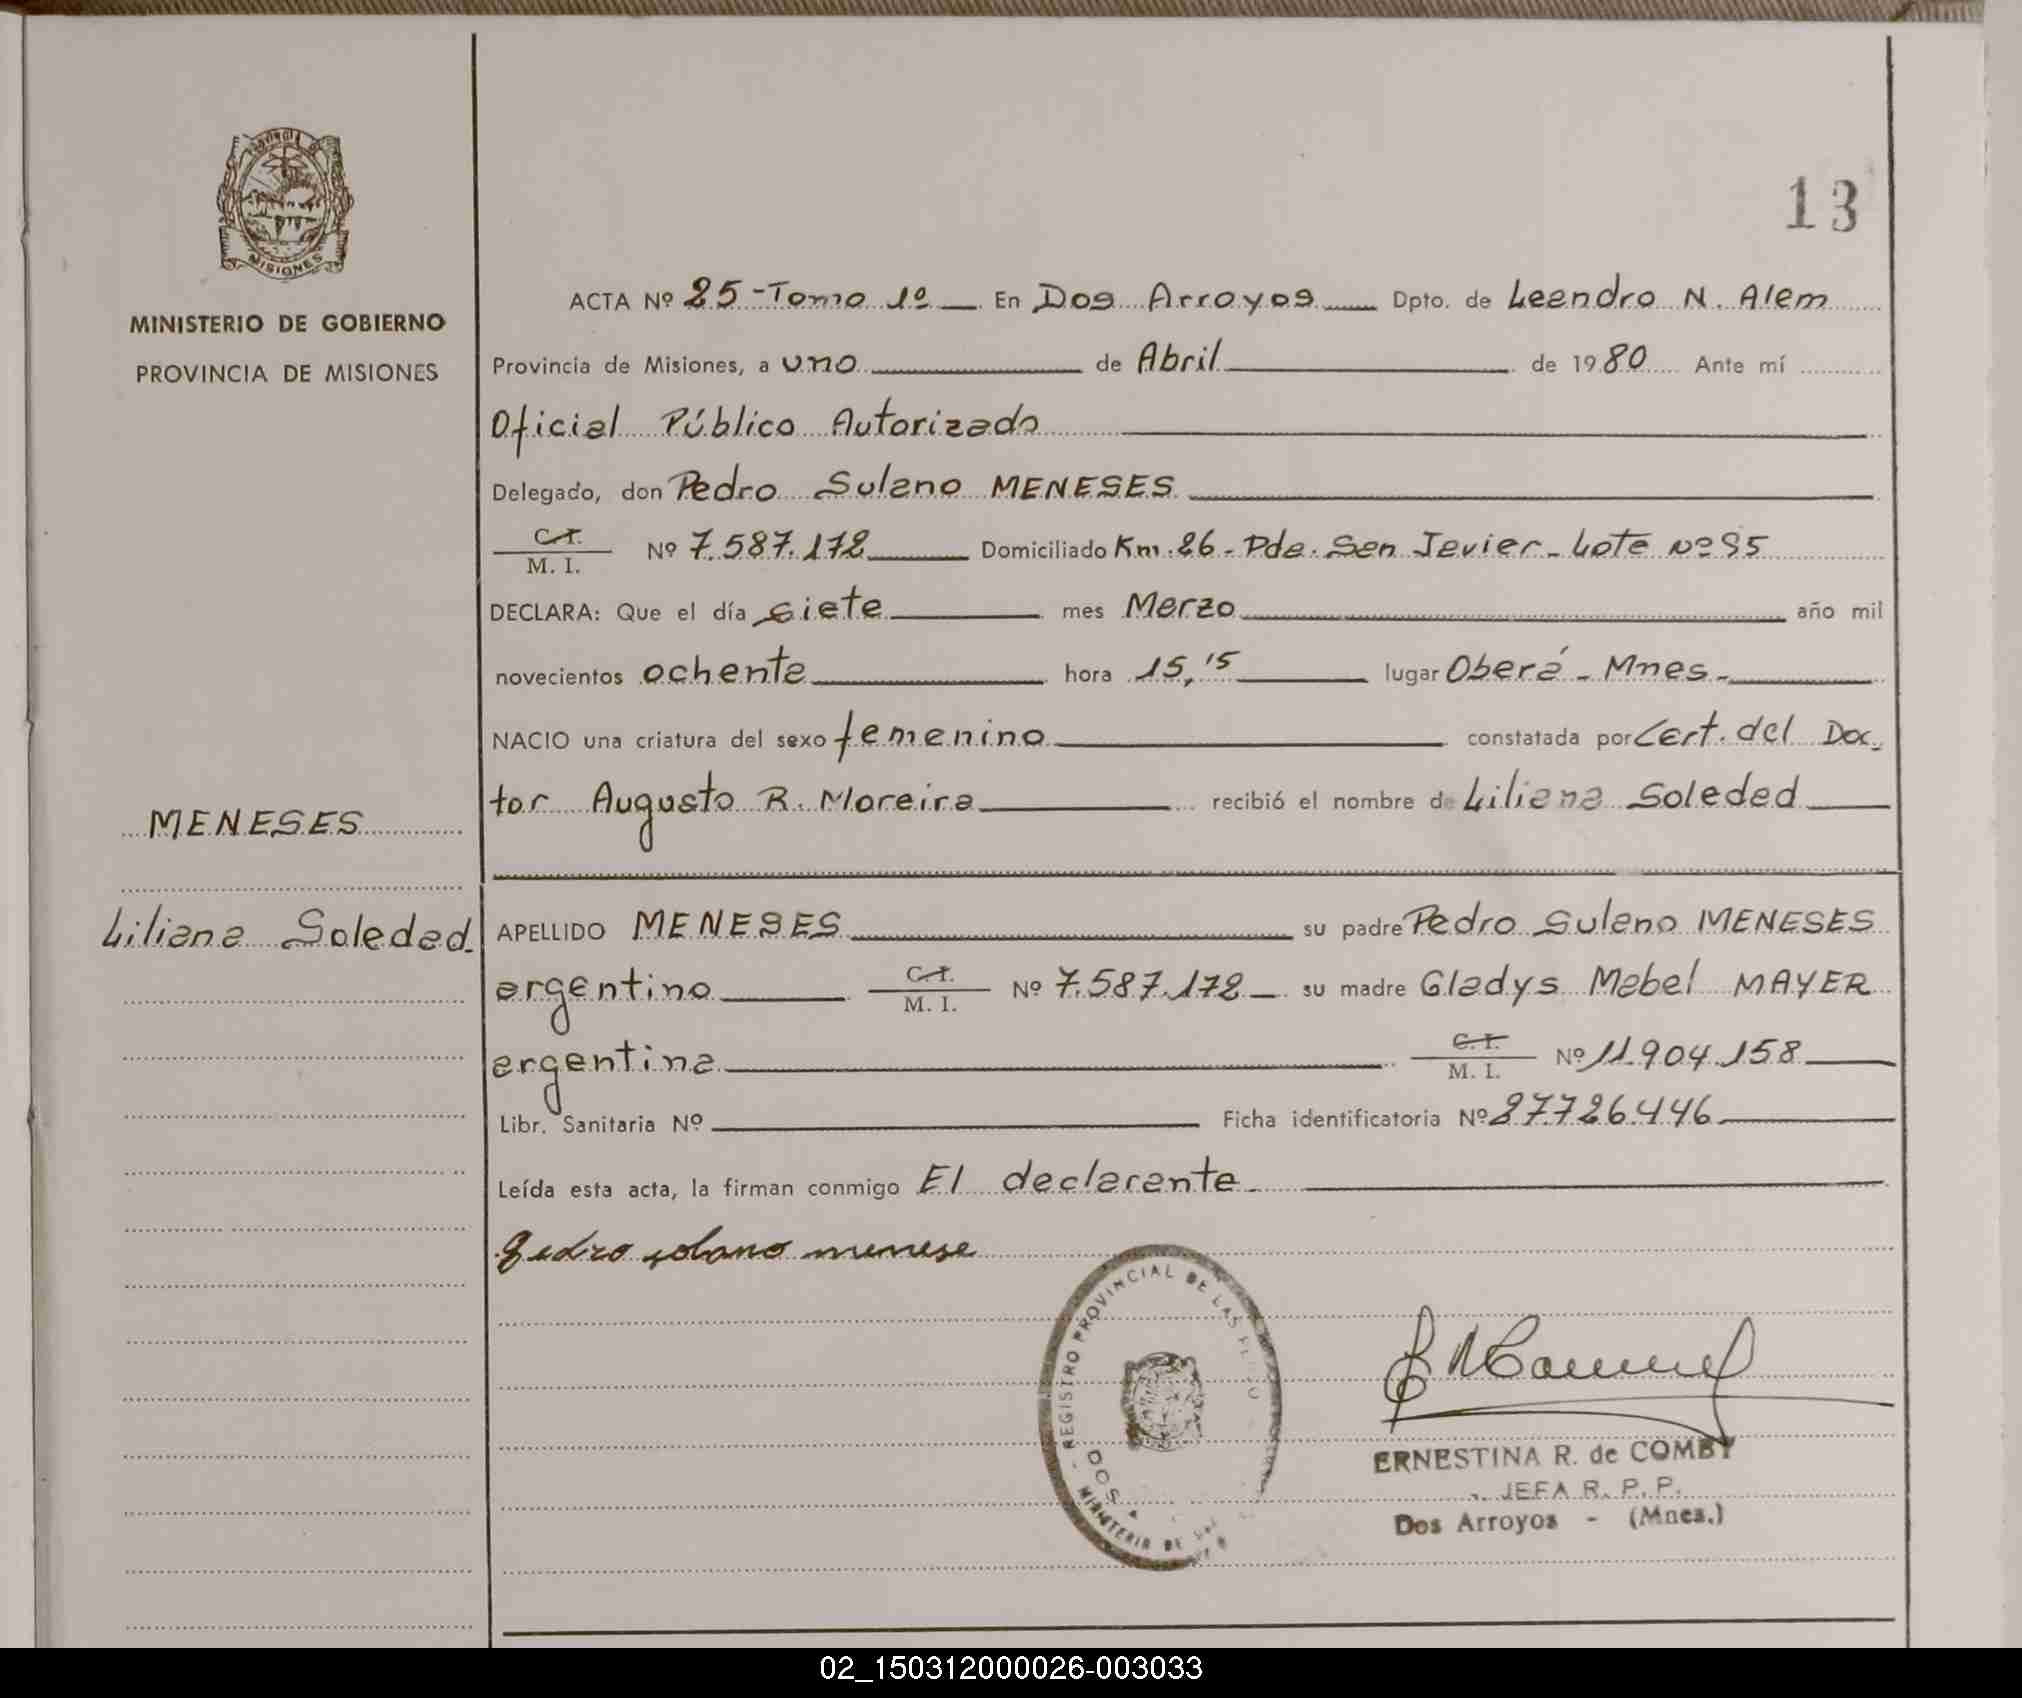 13
PROVINCIA DE
MISIONES
MINISTERIO DE GOBIERNO
PROVINCIA DE MISIONES
ACTA Nº 25 - Tomo 1º En Dos Arroyos Dpto. de Leandro N. Alem
Provincia de Misiones, a uno de Abril de 1980 Ante mí
Oficial Público Autorizado
Delegado, don Pedro Sulano MENESES
C.I.
M. I. Nº 7.587.172 Domiciliado Km. 26 - Pda. San Javier - Lote Nº 95
DECLARA: Que el día siete mes Marzo año mil
novecientos ochenta hora 15,15 lugar Oberá - Mnes -
NACIO una criatura del sexo femenino constatada por Cert. del Doc-
tor Augusto R. Moreira recibió el nombre de Liliana Soledad
MENESES
Liliana Soledad.
APELLIDO MENESES su padre Pedro Sulano MENESES
argentino C.I.
M. I. Nº 7.587.172 su madre Gladys Mabel MAYER
argentina C.I.
M. I. Nº 11.904.158
Libr. Sanitaria Nº Ficha identificatoria Nº 27.726.446
Leída esta acta, la firman conmigo El declarante
Pedro solano menese
REGISTRO PROVINCIAL DE LAS
DOS
MINISTERIO DE
ERNESTINA R. de COMBY
JEFA R. P. P.
Dos Arroyos - (Mnes.)
02_150312000026-003033